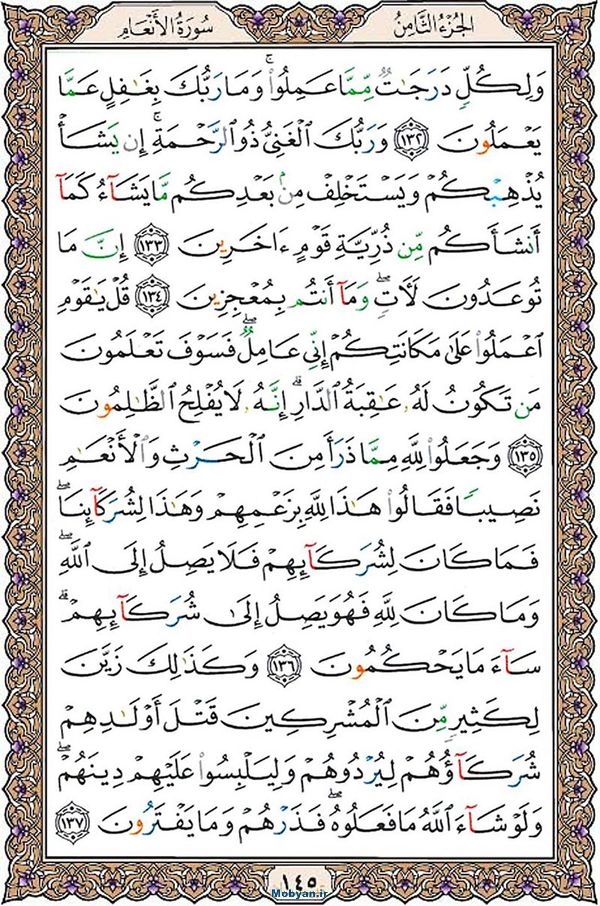 الجُزءُ الثَّامِنُ
سُورَةُ الأَنۡعَامِ
وَلِكُلّٖ دَرَجَٰتٞ مِّمَّا عَمِلُواْۚ وَمَا رَبُّكَ بِغَٰفِلٍ عَمَّا
يَعۡمَلُونَ ١٣٢ وَرَبُّكَ ٱلۡغَنِيُّ ذُو ٱلرَّحۡمَةِۚ إِن يَشَأۡ
يُذۡهِبۡكُمۡ وَيَسۡتَخۡلِفۡ مِنۢ بَعۡدِكُم مَّا يَشَآءُ كَمَآ
أَنشَأَكُم مِّن ذُرِّيَّةِ قَوۡمٍ ءَاخَرِينَ ١٣٣ إِنَّ مَا
تُوعَدُونَ لَأٓتٖۖ وَمَآ أَنتُم بِمُعۡجِزِينَ ١٣٤ قُلۡ يَٰقَوۡمِ
ٱعۡمَلُواْ عَلَىٰ مَكَانَتِكُمۡ إِنِّي عَامِلٞۖ فَسَوۡفَ تَعۡلَمُونَ
مَن تَكُونُ لَهُۥ عَٰقِبَةُ ٱلدَّارِۚ إِنَّهُۥ لَا يُفۡلِحُ ٱلظَّٰلِمُونَ
١٣٥ وَجَعَلُواْ لِلَّهِ مِمَّا ذَرَأَ مِنَ ٱلۡحَرۡثِ وَٱلۡأَنۡعَٰمِ
نَصِيبٗا فَقَالُواْ هَٰذَا لِلَّهِ بِزَعۡمِهِمۡ وَهَٰذَا لِشُرَكَآئِنَاۖ
فَمَا كَانَ لِشُرَكَآئِهِمۡ فَلَا يَصِلُ إِلَى ٱللَّهِۖ
وَمَا كَانَ لِلَّهِ فَهُوَ يَصِلُ إِلَىٰ شُرَكَآئِهِمۡۗ
سَآءَ مَا يَحۡكُمُونَ ١٣٦ وَكَذَٰلِكَ زَيَّنَ
لِكَثِيرٖ مِّنَ ٱلۡمُشۡرِكِينَ قَتۡلَ أَوۡلَٰدِهِمۡ
شُرَكَآؤُهُمۡ لِيُرۡدُوهُمۡ وَلِيَلۡبِسُواْ عَلَيۡهِمۡ دِينَهُمۡۖ
وَلَوۡ شَآءَ ٱللَّهُ مَا فَعَلُوهُۖ فَذَرۡهُمۡ وَمَا يَفۡتَرُونَ ١٣٧
١٤٥
Mobyan.ir